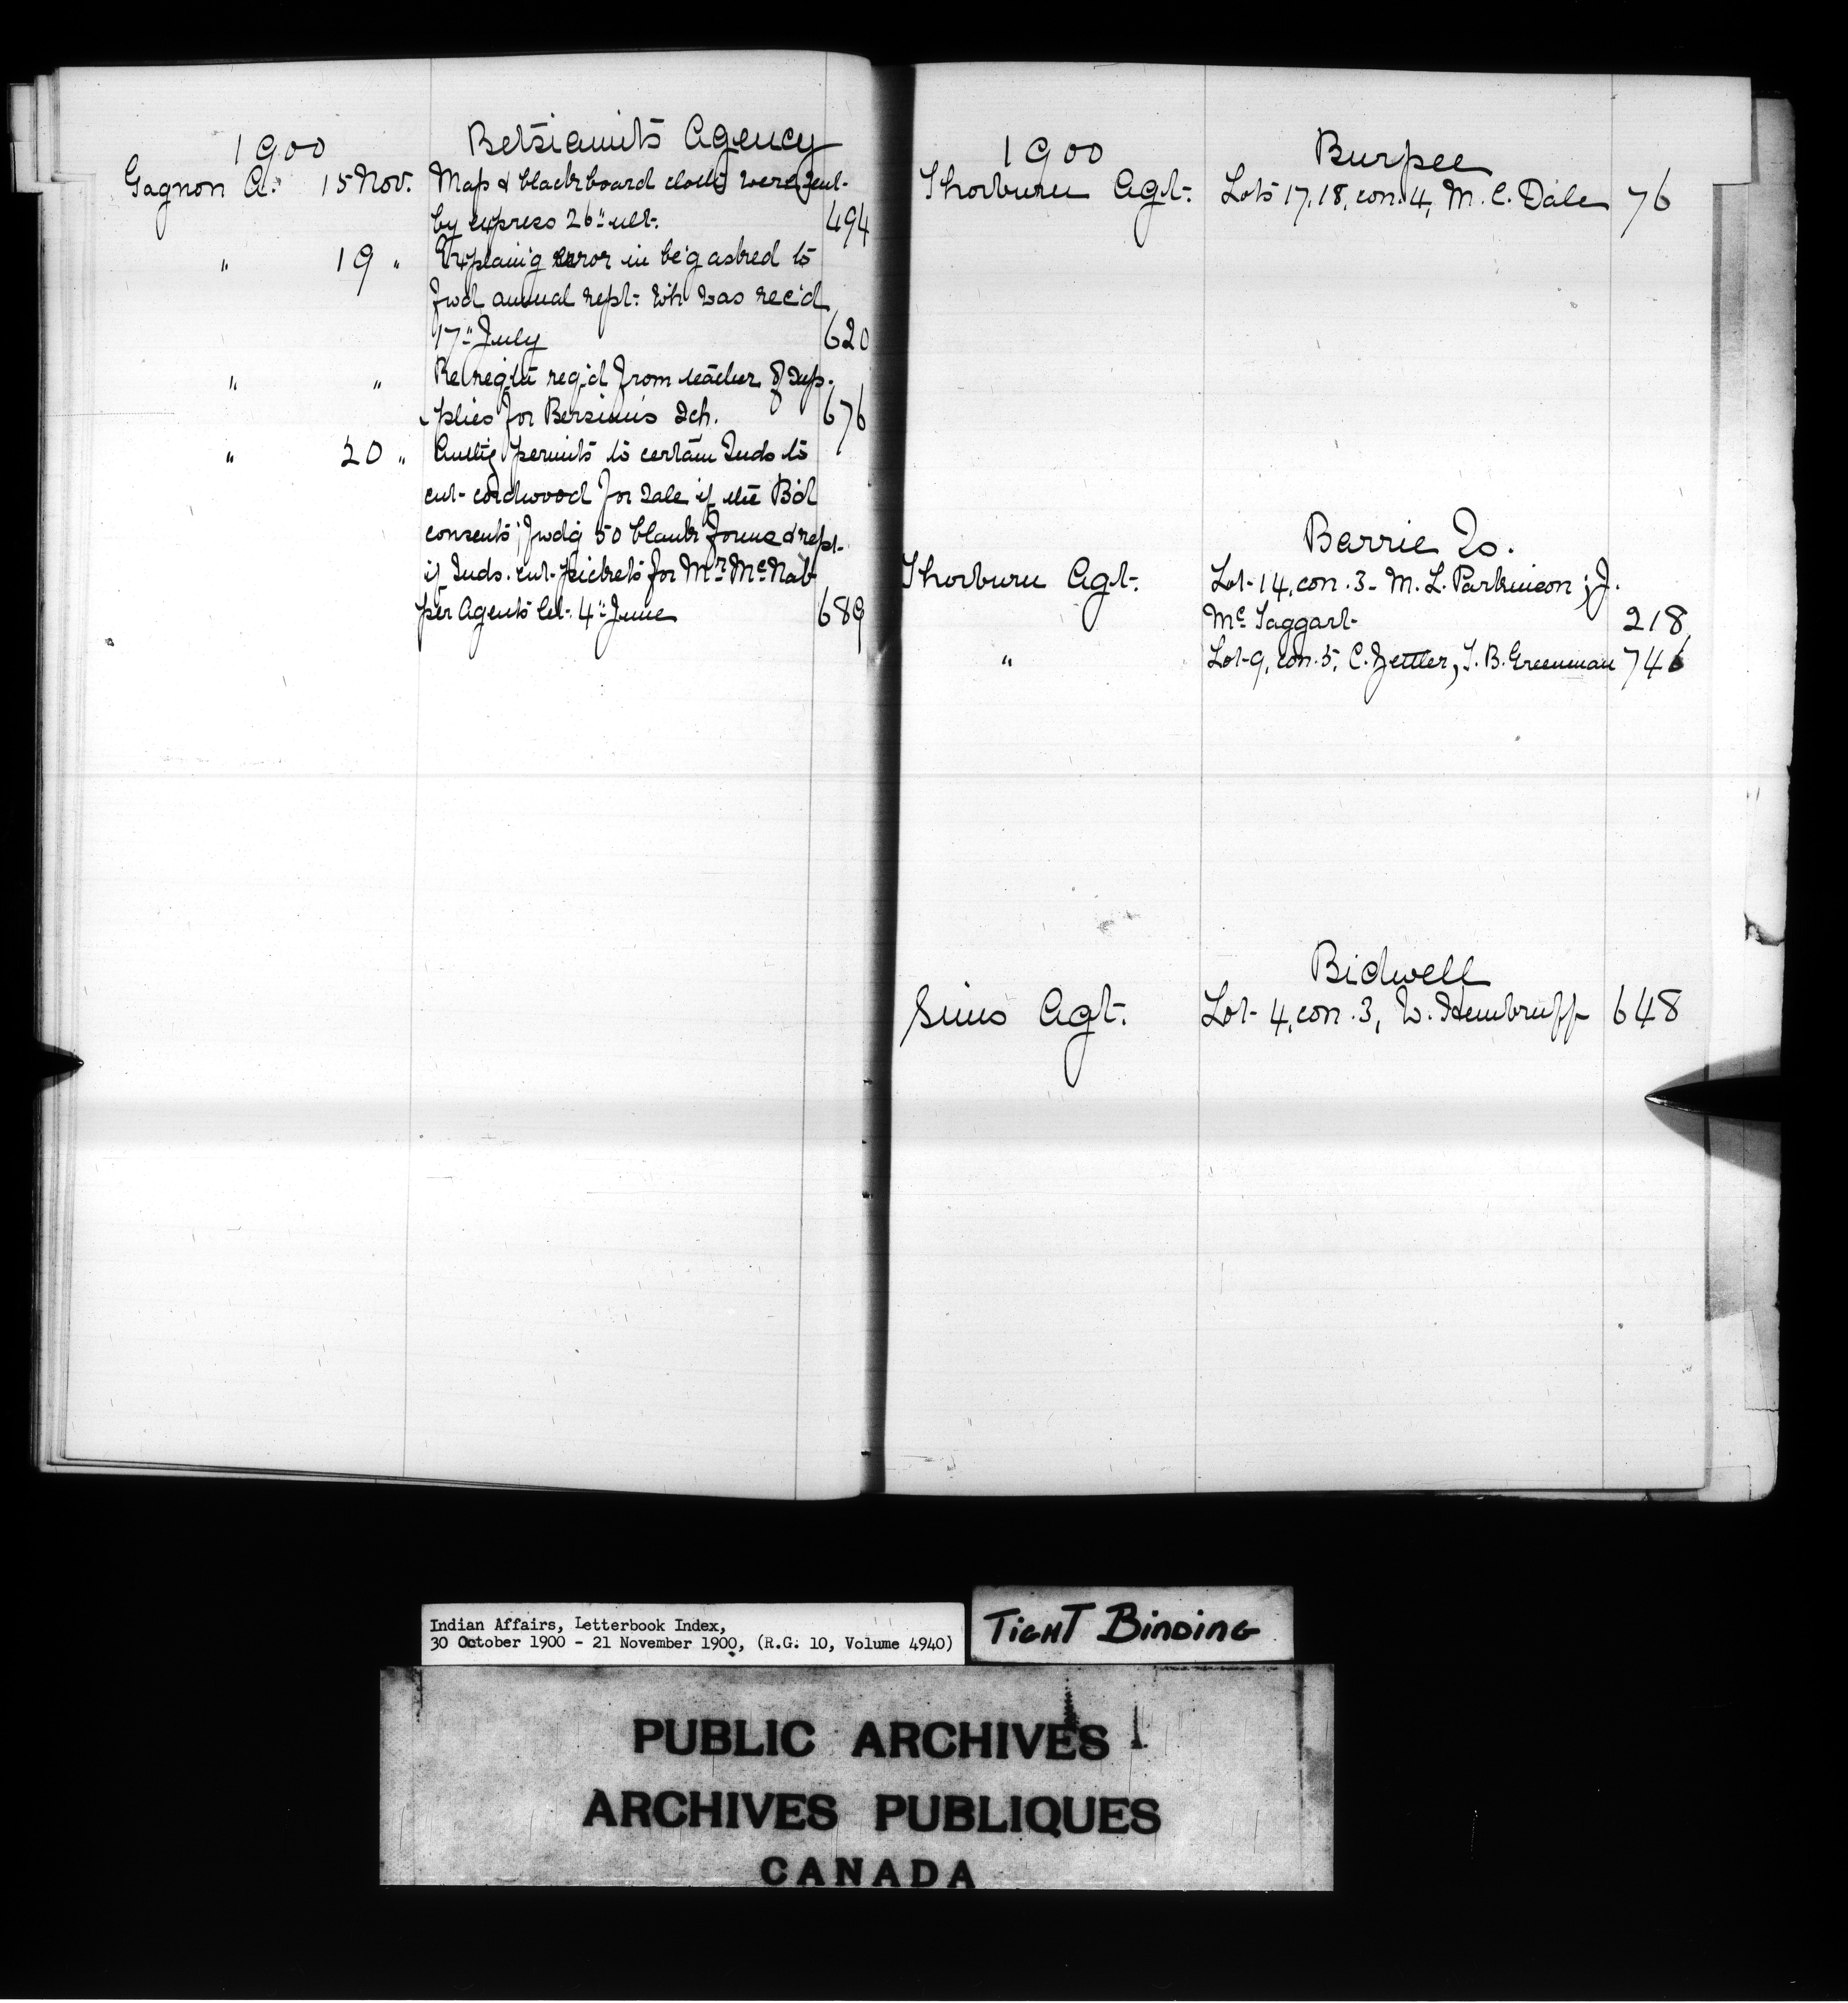 1900 Betsiamits Agency
Gagnon A. 15 Nov. Map & blackboard cloth were sent
by express 26" ult. 494
" 19 " Explain'g error in be'g asked to
fwd annual rept. wh was rec'd
17" July 620
" " Re reqn req'd from teacher of sup-
plies for Bersimis Sch. 676
" 20 " Authg permits to certain Inds to
cut cordwood for sale if the B'd
consents; fwdg 50 blank forms & rept.
if Inds. cut pickets for Mr. McNab
per Agents let. 4" June 689
1900 Burpee
Thorburn Agt. Lots 17, 18, con. 4, M. C. Dale 76
Barrie Is.
Thorburn Agt. Lot 14, con. 3 - M. L. Parkinson; J.
Mc Taggart 218
" Lot 9, con. 5, C. Zettler, T. B. Greenman 746
Bidwell
Sims Agt. Lot 4, con. 3, W. Hembruff 648
Indian Affairs, Letterbook Index,
30 October 1900 - 21 November 1900, (R.G. 10, Volume 4940)
TIGHT BINDING
PUBLIC ARCHIVES
ARCHIVES PUBLIQUES
CANADA